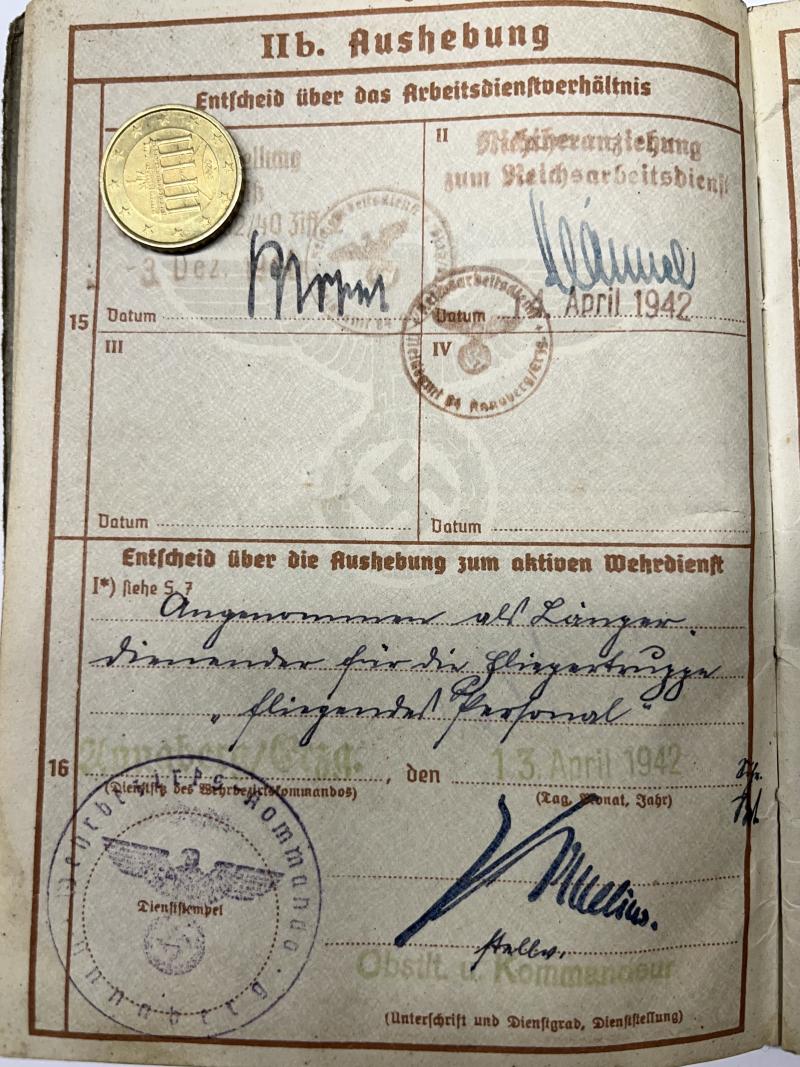 IIb. Aushebung
Entscheid über das Arbeitsdienstverhältnis
II
Nichtheranziehung
zum Reichsarbeitsdienst
Datum
3. Dez.
Datum
4. April 1942
Reichsarbeitsdienst
Meldeamt 84 Annaberg/Erzg.
15
III
IV
Datum
Datum
Entscheid über die Aushebung zum aktiven Wehrdienst
I*) siehe S. 7
Angenommen als Länger
dienender für die Fliegertruppe
„fliegendes Personal“
16
Annaberg/Erzg.
, den
13. April 1942
(Dienstsitz des Wehrbezirkskommandos)
(Tag, Monat, Jahr)
Wehrbezirks-Kommando
Annaberg
Dienststempel
stellv.
Obstlt. u. Kommandeur
(Unterschrift und Dienstgrad, Dienststellung)